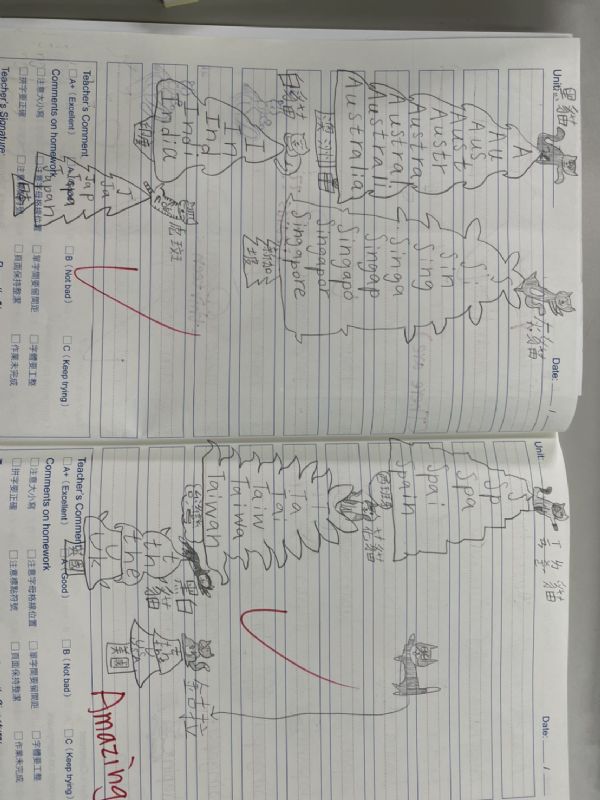 Unit:
Date: / 
黑貓
灰貓
A
Au
Aus
Aust
Austr
Austra
Austral
Australi
Australia
澳洲
S
Si
Sin
Sing
Singa
Singap
Singapo
Singapor
Singapore
新加坡
白貓
I
In
Ind
Indi
India
印度
虎斑
J
Ja
Jap
Japa
Japan
日本
Teacher's Comment
□A+ (Excellent)
□B (Not bad)
□C (Keep trying)
Comments on homework
□注意大小寫
□注意字母格線位置
□單字間要留間距
□字體要工整
□拼字要正確
□頁面保持整潔
□作業未完成
Teacher's Signature:
Unit:
Date: /
S
Sp
Spa
Spai
Spain
西班牙
T
Ta
Tai
Taiw
Taiwa
Taiwan
台灣
黑白貓
th
the
UK
英國
the
USA
美國
Teacher's Comment
□A+ (Excellent)
□A (Good)
□B (Not bad)
□C (Keep trying)
Comments on homework
□注意大小寫
□注意字母格線位置
□單字間要留間距
□字體要工整
□拼字要正確
□注意標點符號
□頁面保持整潔
□作業未完成
Amazing